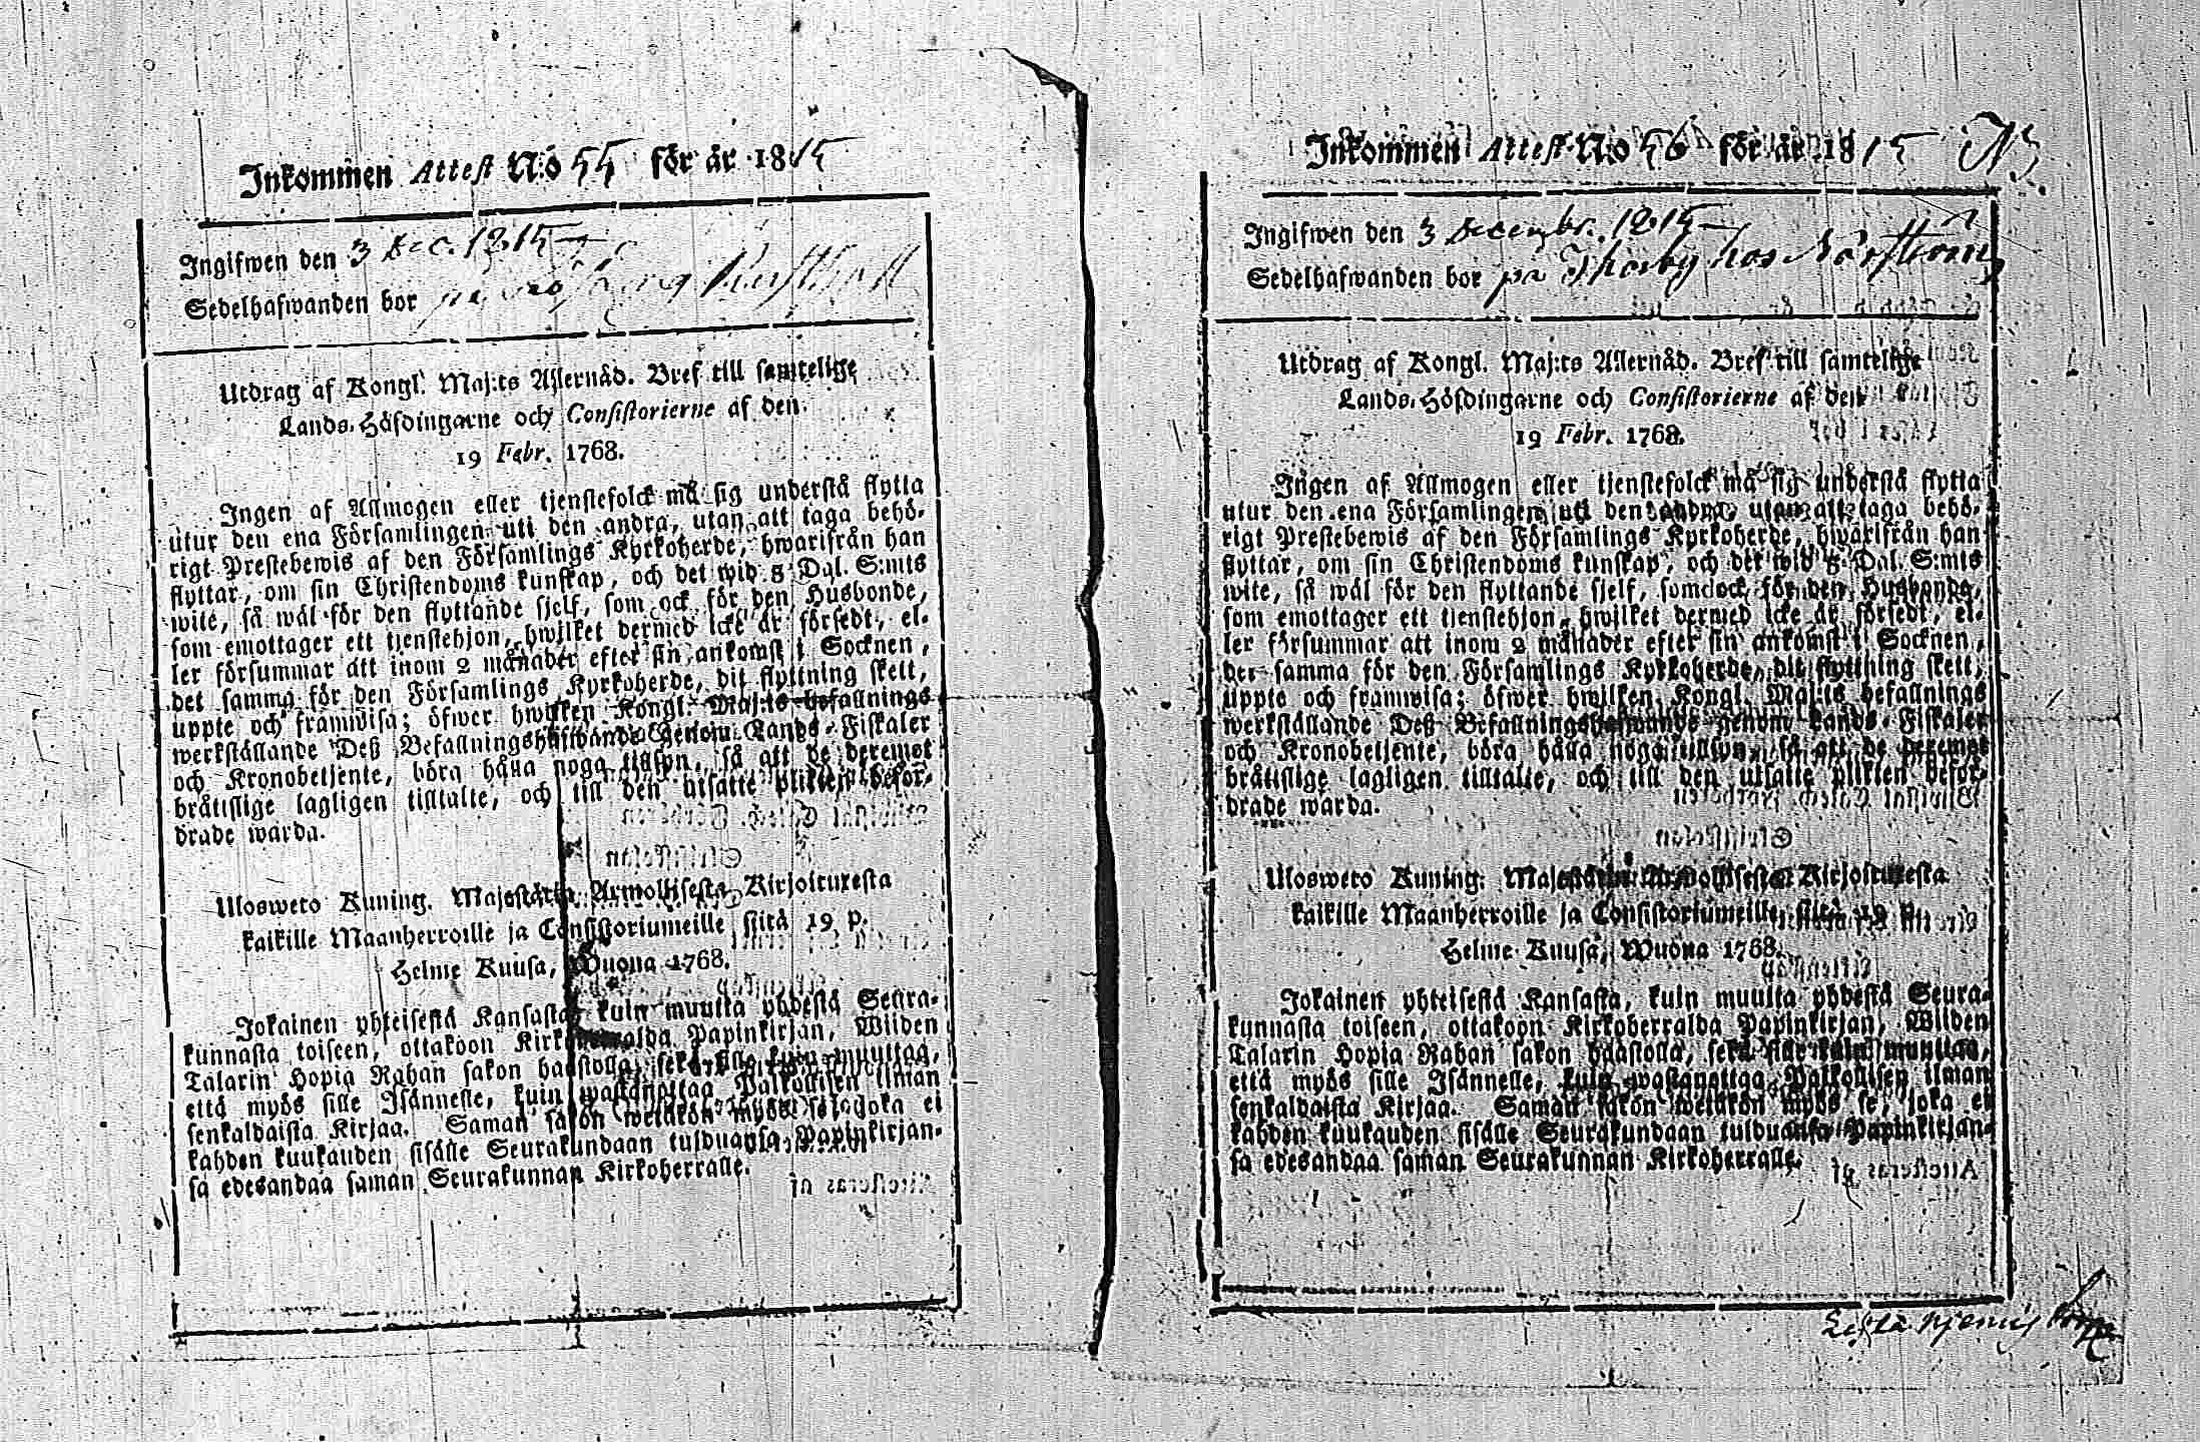 Inkommen Attest N:o 55 för år 1815
Ingifwen den 3 Dec. 1815
Sedelhafwanden bor på Rusthåll
Utdrag af Kongl. Maj:ts Allernåd. Bref till samtelige
Lands-Höfdingarne och Consistorierne af den
19 Febr. 1768.
Ingen af Allmogen eller tjenstefolck må sig understå flytta
utur den ena Församlingen uti den andra, utan att taga behö-
rigt Prestebewis af den Församlings Kyrkoherde, hwarifrån han
flyttar, om sin Christendoms kunskap, och det wid 8 Dal. S:mts
wite, så wäl för den flyttande sjelf, som ock för den Husbonde,
som emottager ett tjenstehjon, hwilket dermed icke är försedt, el-
ler försummar att inom 2 månader efter sin ankomst i Socknen,
det samma för den Församlings Kyrkoherde, dit flyttning skett,
uppte och framwisa; öfwer hwilken Kongl. Maj:ts befallnings
werkställande Deß Befallningshafwande genom Lands-Fiskaler
och Kronobetjente, böra hålla noga tillsyn, så att de deremot
bråtislige lagligen tilltalte, och till den utsatte plikten befor-
drade warda.
Ulosweto Kuning. Majestätin Armollisesta Kirjoituxesta
kaikille Maanherroille ja Consistoriumeille siitä 19 p.
Helme Kuusa, Wuona 1768.
Jokainen yhteisestä Kansasta, kuin muutta yhdestä Seura-
kunnasta toiseen, ottakoon Kirkoherralda Papinkirjan, Wiiden
Talarin Hopia Rahan sakon haastolla, sekä sille kuin muuttaa,
että myös sille Isännelle, kuin wastanottaa Palkollisen ilman
senkaldaista Kirjaa. Saman sakon wetäkön myös se, joka ei
kahden kuukauden sisälle Seurakundaan tulduansa Papinkirjan-
sa edesandaa saman Seurakunnan Kirkoherralle.
Inkommen Attest N:o 56 för år 1815 NB.
Ingifwen den 3 Decembr. 1815
Sedelhafwanden bor på Thorby hos Norström
Utdrag af Kongl. Maj:ts Allernåd. Bref till samtelige
Lands-Höfdingarne och Consistorierne af den
19 Febr. 1768.
Ingen af Allmogen eller tjenstefolck må sig understå flytta
utur den ena Församlingen uti den andra, utan att taga behö-
rigt Prestebewis af den Församlings Kyrkoherde, hwarifrån han
flyttar, om sin Christendoms kunskap, och det wid 8 Dal. S:mts
wite, så wäl för den flyttande sjelf, som ock för den Husbonde,
som emottager ett tjenstehjon, hwilket dermed icke är försedt, el-
ler försummar att inom 2 månader efter sin ankomst i Socknen,
det samma för den Församlings Kyrkoherde, dit flyttning skett,
uppte och framwisa; öfwer hwilken Kongl. Maj:ts befallnings
werkställande Deß Befallningshafwande genom Lands-Fiskaler
och Kronobetjente, böra hålla noga tillsyn, så att de deremot
bråtislige lagligen tilltalte, och till den utsatte plikten befor-
drade warda.
Ulosweto Kuning. Majestätin Armollisesta Kirjoituxesta
kaikille Maanherroille ja Consistoriumeille, siitä 19 p.
Helme Kuusa, Wuona 1768.
Jokainen yhteisestä Kansasta, kuin muutta yhdestä Seura-
kunnasta toiseen, ottakoon Kirkoherralda Papinkirjan, Wiiden
Talarin Hopia Rahan sakon haastolla, sekä sille kuin muuttaa,
että myös sille Isännelle, kuin wastanottaa Palkollisen ilman
senkaldaista Kirjaa. Saman sakon wetäkön myös se, joka ei
kahden kuukauden sisälle Seurakundaan tulduansa Papinkirjan-
sa edesandaa saman Seurakunnan Kirkoherralle.